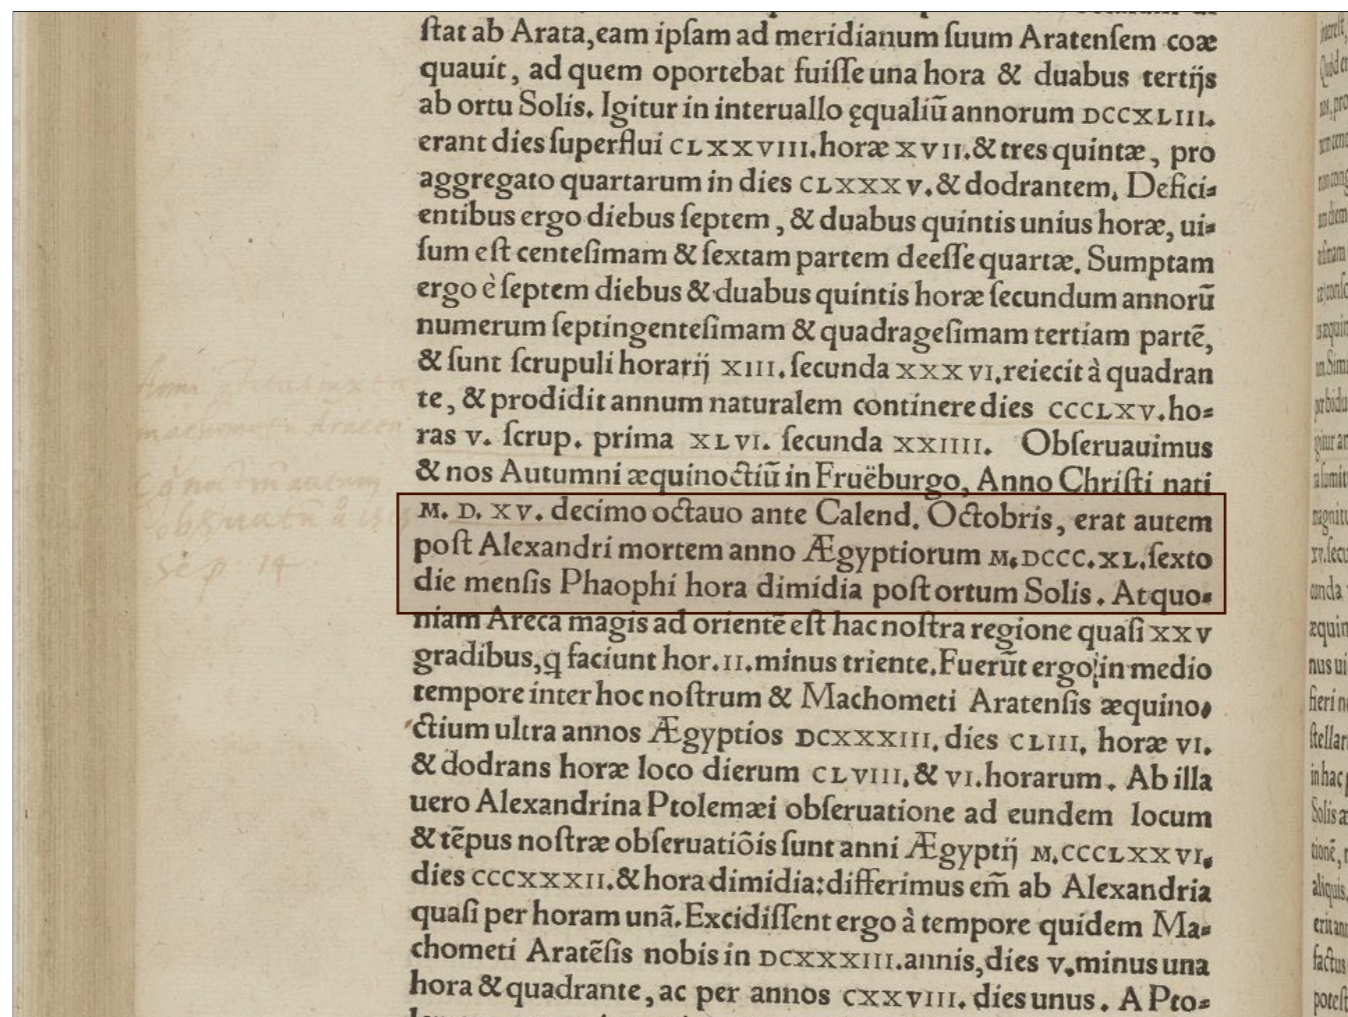 ſtat ab Arata, eam ipſam ad meridianum ſuum Aratenſem coæ
quauit, ad quem oportebat fuiſſe una hora & duabus tertijs
ab ortu Solis. Igitur in interuallo ęqualiũ annorum DCCXLIII.
erant dies ſuperflui CLXXVIII. horæ XVII. & tres quintæ, pro
aggregato quartarum in dies CLXXXV. & dodrantem. Defici⸗
entibus ergo diebus ſeptem, & duabus quintis unius horæ, ui⸗
ſum eſt centeſimam & ſextam partem deeſſe quartæ. Sumptam
ergo è ſeptem diebus & duabus quintis horæ ſecundum annorũ
numerum ſeptingenteſimam & quadrageſimam tertiam partẽ,
& ſunt ſcrupuli horarij XIII. ſecunda XXXVI. reiecit à quadran
te, & prodidit annum naturalem continere dies CCCLXV. ho⸗
ras V. ſcrup. prima XLVI. ſecunda XXIIII. Obſeruauimus
& nos Autumni æquinoctiũ in Fruëburgo, Anno Chriſti nati
M. D. XV. decimo octauo ante Calend. Octobris, erat autem
poſt Alexandri mortem anno Ægyptiorum M.DCCC.XL. ſexto
die menſis Phaophi hora dimidia poſt ortum Solis. At quo⸗
niam Areca magis ad orientẽ eſt hac noſtra regione quaſi XXV
gradibus, q̃ faciunt hor. II. minus triente. Fuerũt ergo in medio
tempore inter hoc noſtrum & Machometi Aratenſis æquino⸗
ctium ultra annos Ægyptios DCXXXIII. dies CLIII. horæ VI.
& dodrans horæ loco dierum CLVIII. & VI. horarum. Ab illa
uero Alexandrina Ptolemæi obſeruatione ad eundem locum
& tẽpus noſtræ obſeruatiõis ſunt anni Ægyptij M.CCCLXXVI.
dies CCCXXXII. & hora dimidia: differimus em̃ ab Alexandria
quaſi per horam unã. Excidiſſent ergo à tempore quidem Ma⸗
chometi Aratẽſis nobis in DCXXXIII. annis, dies V. minus una
hora & quadrante, ac per annos CXXVIII. dies unus. A Pto⸗